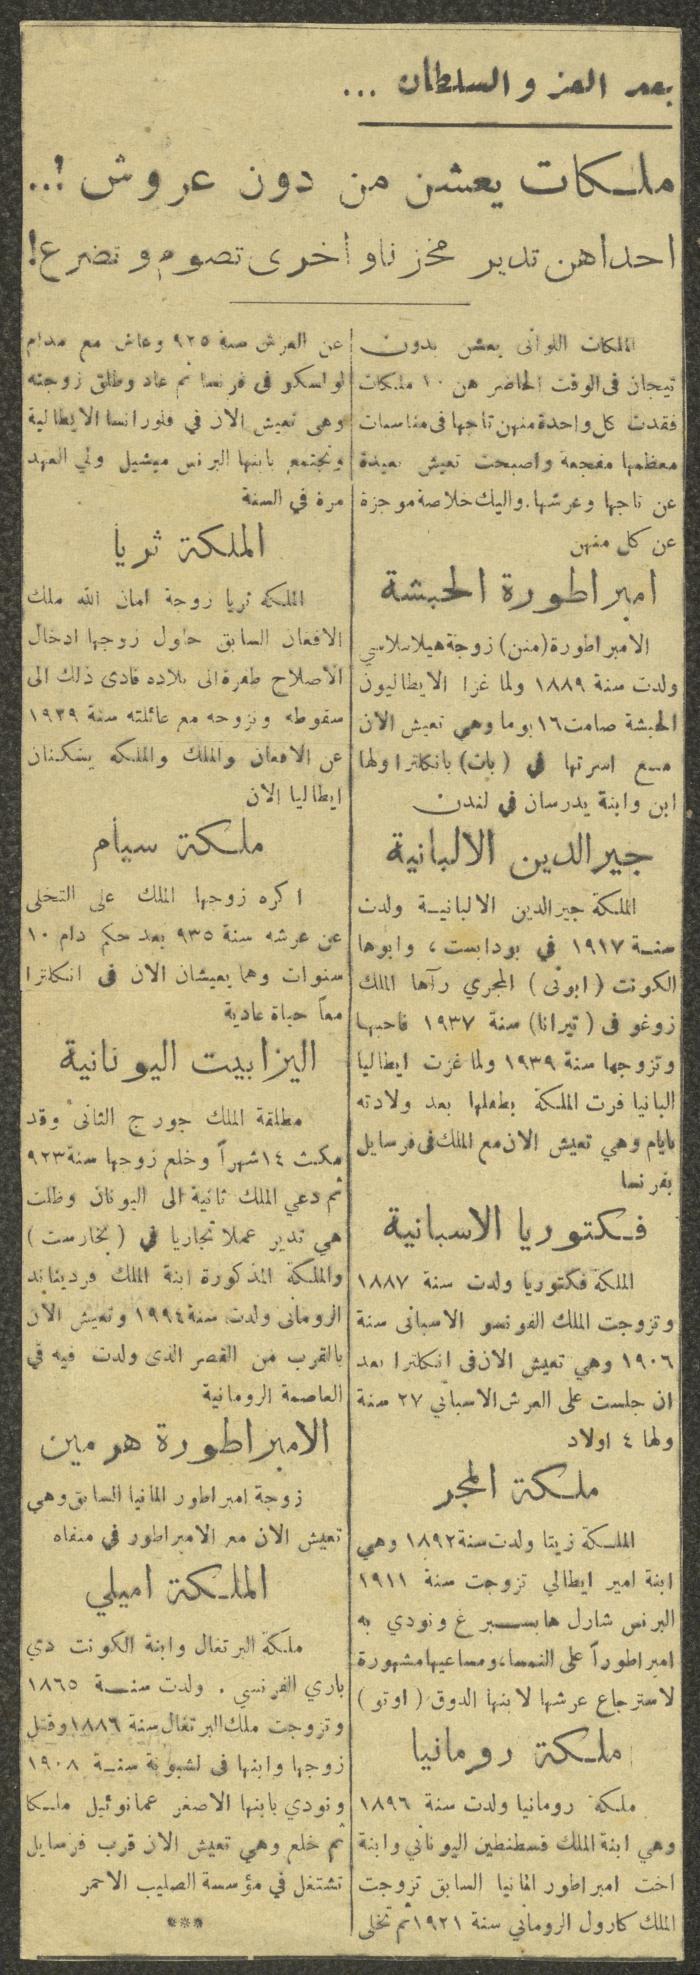 بعد العز والسلطان ...
ملكات يعشن من دون عروش !..
احداهن تدير مخزنا واخرى تصوم وتضرع !
الملكات اللواتى يعشن بدون
تيجان فى الوقت الحاضر هن ١٠ ملكات
فقدت كل واحدة منهن تاجها فى مناسبات
معظمها مفجعة واصبحت تعيش بعيدة
عن تاجها وعرشها. واليك خلاصة موجزة
عن كل منهن
امبراطورة الحبشة
الامبراطورة (منن) زوجة هيلاسلاسي
ولدت سنة ١٨٨٩ ولما غزا الايطاليون
الحبشة صامت ١٦ يوما وهي تعيش الان
مع اسرتها في (باث) بانكلترا ولها
ابن وابنة يدرسان في لندن
جيرالدين الالبانية
الملكة جيرالدين الالبانية ولدت
سنة ١٩١٧ في بودابست، وابوها
الكونت (ابونى) المجري رآها الملك
زوغو فى (تيرانا) سنة ١٩٣٧ فاحبها
وتزوجها سنة ١٩٣٩ ولما غزت ايطاليا
البانيا فرت الملكة بطفلها بعد ولادته
بايام وهي تعيش الان مع الملك فى فرسايل
بفرنسا
فكتوريا الاسبانية
الملكة فكتوريا ولدت سنة ١٨٨٧
وتزوجت الملك الفونسو الاسبانى سنة
١٩٠٦ وهي تعيش الان فى انكلترا بعد
ان جلست على العرش الاسباني ٢٧ سنة
ولها ٤ اولاد
ملكة المجر
الملكة زيتا ولدت سنة ١٨٩٢ وهي
ابنة امير ايطالي تزوجت سنة ١٩١١
البرنس شارل هابسبرغ ونودي به
امبراطوراً على النمسا، ومساعيها مشهورة
لاسترجاع عرشها لابنها الدوق (اوتو)
ملكة رومانيا
ملكة رومانيا ولدت سنة ١٨٩٦
وهي ابنة الملك قسطنطين اليوناني وابنة
اخت امبراطور المانيا السابق تزوجت
الملك كارول الروماني سنة ١٩٢١ ثم تخلى
عن العرش سنة ٩٢٥ وعاش مع مدام
لوبسكو فى فرنسا ثم عاد وطلق زوجته
وهى تعيش الان في فلورانسا الايطالية
وتجتمع بابنها البرنس ميشيل ولي العهد
مرة في السنة
الملكة ثريا
الملكة ثريا زوجة امان الله ملك
الافغان السابق حاول زوجها ادخال
الاصلاح طفرة الى بلاده فادى ذلك الى
سقوطه ونزوحه مع عائلته سنة ١٩٢٩
عن الافغان والملك والملكة يسكنان
ايطاليا الان
ملكة سيام
اكره زوجها الملك على التخلى
عن عرشه سنة ٩٣٥ بعد حكم دام ١٠
سنوات وهما يعيشان الان فى انكلترا
معاً حياة عادية
اليزابيت اليونانية
مطلقة الملك جورج الثانى وقد
مكث ١٤ شهراً وخلع زوجها سنة ٩٢٣
ثم دعي الملك ثانية الى اليونان وظلت
هي تدير عملا تجاريا في (بخارست)
والملكة المذكورة ابنة الملك فرديناند
الرومانى ولدت سنة ١٩٩٤ وتعيش الآن
بالقرب من القصر الذى ولدت فيه في
العاصمة الرومانية
الامبراطورة هرمين
زوجة امبراطور المانيا السابق وهي
تعيش الان مع الامبراطور في منفاه
الملكة اميلي
ملكة البرتغال وابنة الكونت دي
باري الفرنسي . ولدت سنة ١٨٦٥
وتزوجت ملك البرتغال سنة ١٨٨٦ وقتل
زوجها وابنها فى لشبونة سنة ١٩٠٨
ونودي بابنها الاصغر عمانوئيل ملكا
ثم خلع وهي تعيش الان قرب فرسايل
تشتغل في مؤسسة الصليب الاحمر
***